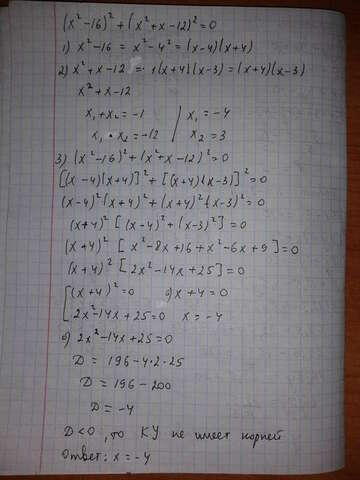 (x²-16)² + (x²+x-12)² = 0
1) x²-16 = x²-4² = (x-4)(x+4)
2) x²+x-12 = 1(x+4)(x-3) = (x+4)(x-3)
x²+x-12
x₁+x₂ = -1 / x₁ = -4
x₁ • x₂ = -12 / x₂ = 3
3) (x²-16)² + (x²+x-12)² = 0
[(x-4)(x+4)]² + [(x+4)(x-3)]² = 0
(x-4)²(x+4)² + (x+4)²(x-3)² = 0
(x+4)² [(x-4)² + (x-3)²] = 0
(x+4)² [x²-8x+16+x²-6x+9] = 0
(x+4)² [2x²-14x+25] = 0
[(x+4)² = 0 а) x+4 = 0
2x²-14x+25 = 0 x = -4
б) 2x²-14x+25 = 0
D = 196-4•2•25
D = 196-200
D = -4
D<0, то КУ не имеет корней
Ответ: x = -4